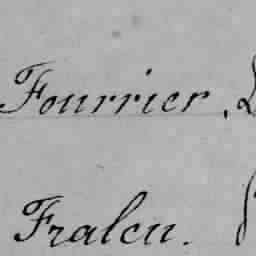 Fourrier.
Fralcu.